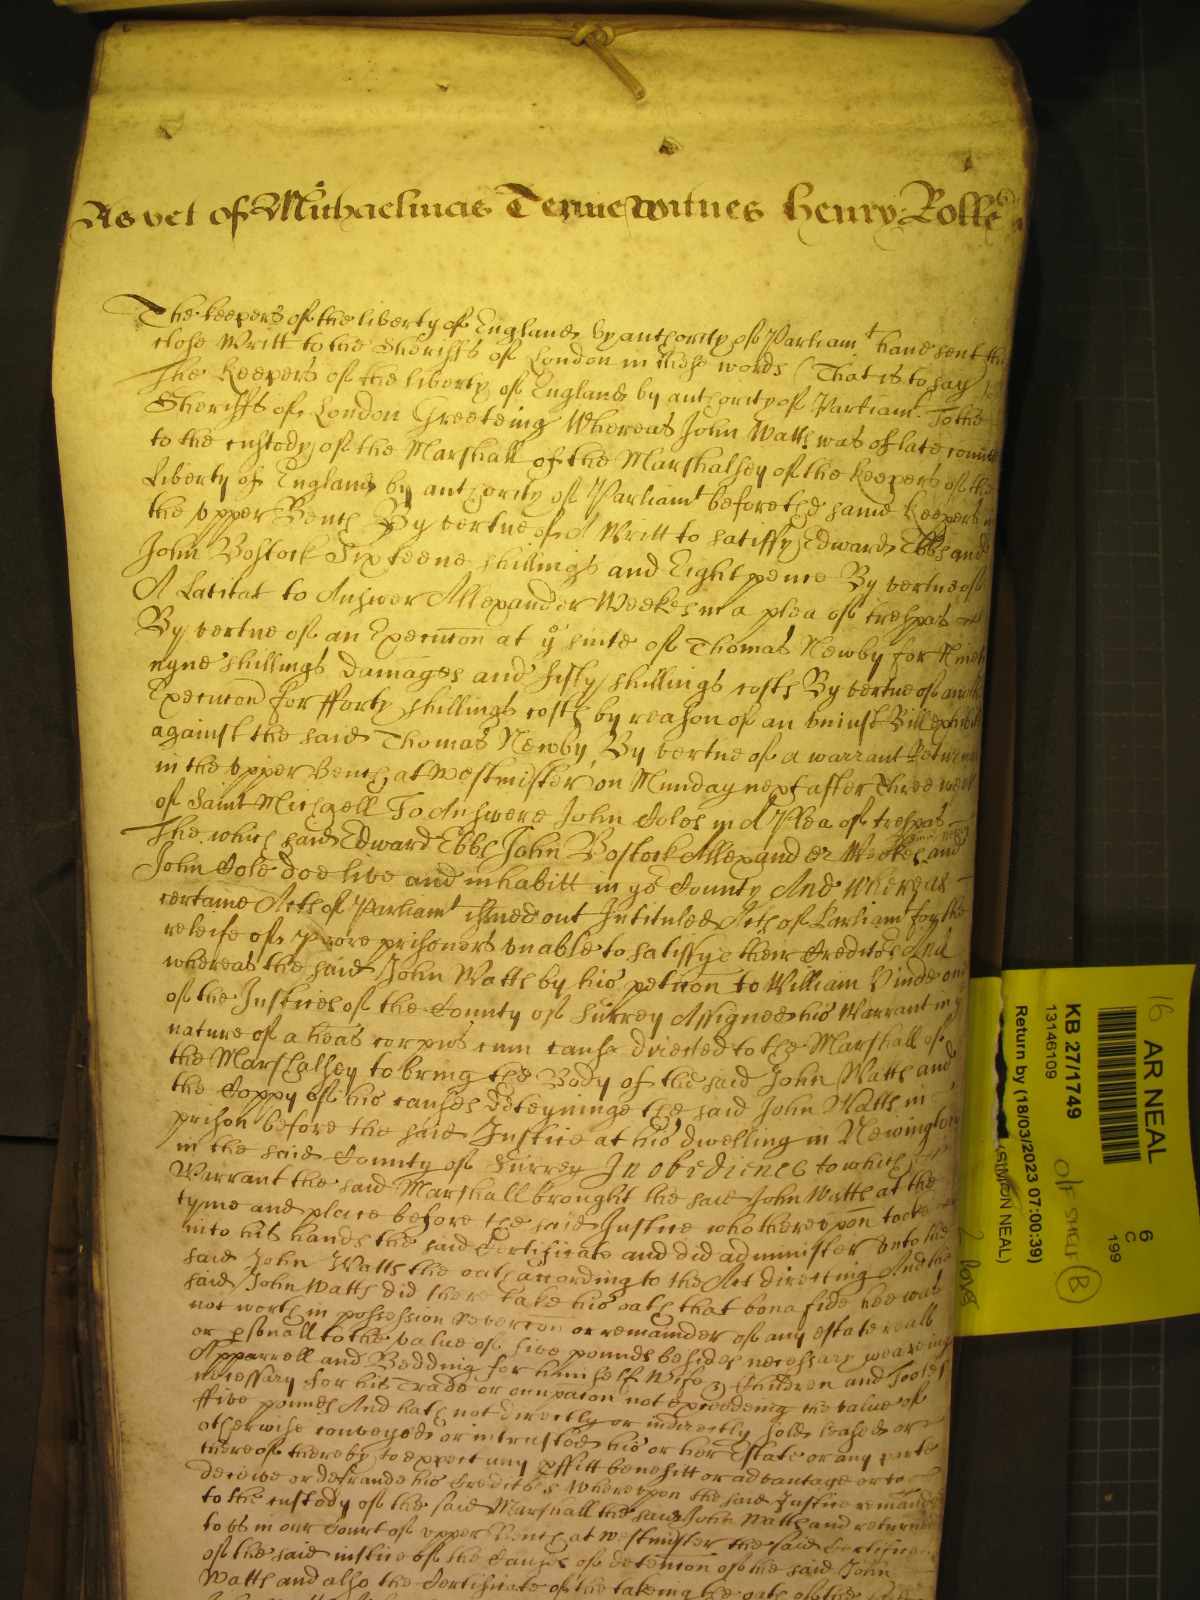 As yet of Michaelmas Terme witnes Henry Rolle
The keepers of the liberty of England by authority of Parliamt have sent the
close Writt to the Sheriffs of London in these words (That is to say)
The Keepers of the liberty of England by authority of Parliamt To the
Sheriffs of London Greeteing Whereas John Watts was of late comitt
to the custody of the Marshall of the Marshalsey of the keepers of the
Liberty of England by authority of Parliamt before the same keepers in
the vpper Bench By vertue of A Writt to satisfy Edward Ebbs and
John Bostock Sixteene shillings and Eight pence By vertue of
A Latitat to Answer Allexander Weekes in a plea of trespas
By vertue of an Execucon at ye suite of Thomas Newby for
nyne shillings damages and fifty shillings costs By vertue of
Execucon for fforty shillings costs by reason of an vniust Bill
against the said Thomas Newby By vertue of a warrant
in the vpper Bench at westminster on Munday next after Three
of Saint Michaell To Answere John Coles in A Plea of trespas
The which said Edward Ebbs John Bostock Allexander Weekes and
John Cole doe live and inhabitt in yor County And whereas
certaine Acts of Parliamt issued out Intituled Acts of Parliamt for the
releife of poore prisoners vnable to satisfye their Creditors And
whereas the said John Watts by his peticon to William
of the Justices of the County of Surrey Assigned his Warrant in ye
nature of a heas corpus cum causa directed to the Marshall of
the Marshalsey to bring the Body of the said John Watts and
the Coppy of his causes deteyninge the said John Watts in
prison before the said Justice at his dwelling in Newington
in the said County of Surrey In obedience to which
Warrant the said Marshall brought the said John Watts at the
tyme and place before the said Justice who therevpon tooke
into his hands the said Certificate and did administer vnto the
said John Watts the oath according to the Act directing And the
said John Watts did there take his oath that bona fide hee was
not worth in possession Revercon or remainder of any estate reall
or psonall to the value of five pounds besides necessary weareing
Apparrell and Bedding for himself Wife & Children and Tooles
necessary for his Trade or occupacon not exceeding the value of
ffive pounds And hath not directly or indirectly sold leased or
otherwise conveyed or intrusted his or her Estate or any parte
thereof thereby to expect any pffitt benefitt or advantage or to
deceive or defraude his Creditors Wherevpon the said Justice remanded
to the custody of the said Marshall the said John Watts and returned
to vs in our Court of vpper Bench at westminster the said
of the said iustice of the Causes of detencon of the said John
Watts and also the Certificate of the takeing the oath of the
16 AR NEAL
6
C
199
KB 27/1749
13146109
Return by (18/03/2023 07:00:39)
(SIMON NEAL)
O/F SHELF B